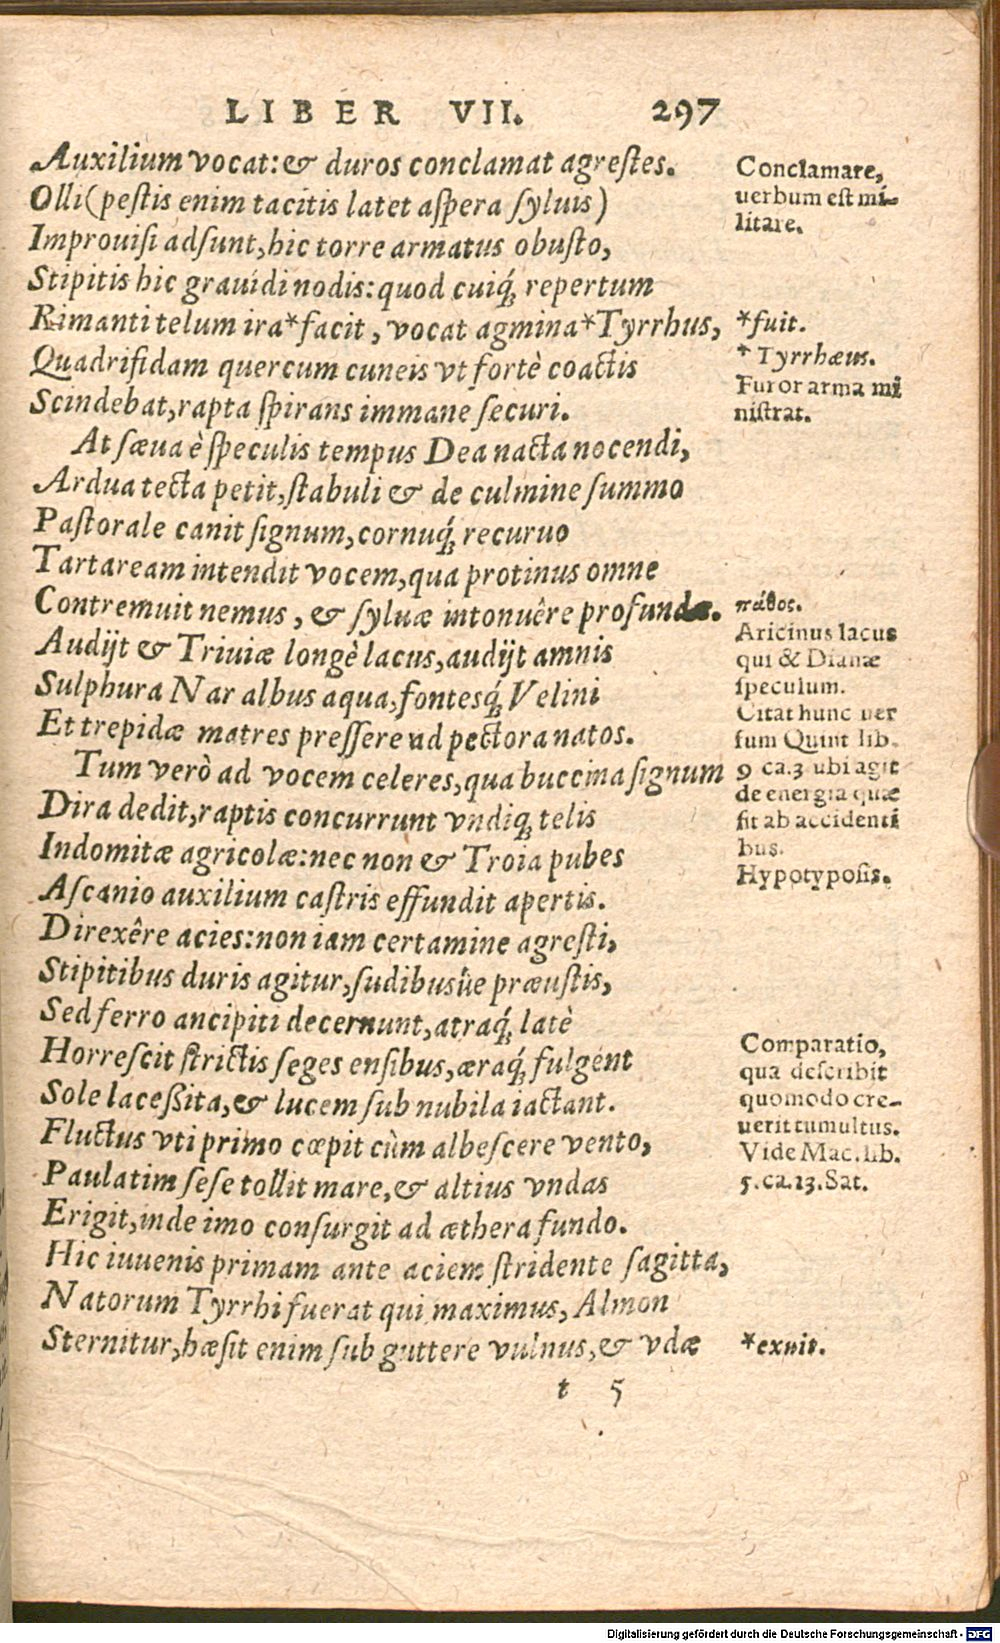 LIBER VII. 297
Auxilium vocat: & duros conclamat agreſtes.
Olli (peſtis enim tacitis latet aſpera ſyluis)
Improuiſi adſunt, hic torre armatus obuſto,
Stipitis hic grauidi nodis: quod cuiq́; repertum
Rimanti telum ira*facit, vocat agmina*Tyrrhus,
Quadrifidam quercum cuneis vt fortè coactis
Scindebat, rapta ſpirans immane ſecuri.
At ſæua è ſpeculis tempus Dea nacta nocendi,
Ardua tecta petit, ſtabuli & de culmine ſummo
Paſtorale canit ſignum, cornuq́; recuruo
Tartaream intendit vocem, qua protinus omne
Contremuit nemus, & ſyluæ intonuêre profundæ.
Audijt & Triuiæ longè lacus, audijt amnis
Sulphura Nar albus aqua, fontesq́; Velini
Et trepidæ matres preſſere ad pectora natos.
Tum verò ad vocem celeres, qua buccina ſignum
Dira dedit, raptis concurrunt vndiq; telis
Indomitæ agricolæ: nec non & Troia pubes
Aſcanio auxilium caſtris effundit apertis.
Direxêre acies: non iam certamine agreſti,
Stipitibus duris agitur, ſudibusúe præuſtis,
Sed ferro ancipiti decernunt, atraq́; latè
Horreſcit ſtrictis ſeges enſibus, æraq́; fulgent
Sole laceßita, & lucem ſub nubila iactant.
Fluctus vti primo cœpit cùm albeſcere vento,
Paulatim ſeſe tollit mare, & altius vndas
Erigit, inde imo conſurgit ad æthera fundo.
Hic iuuenis primam ante aciem ſtridente ſagitta,
Natorum Tyrrhi fuerat qui maximus, Almon
Sternitur, hæſit enim ſub gutture vulnus, & vdæ
t 5
Conclamare,
uerbum eſt mi-
litare.
*fuit.
* Tyrrhæus.
Furor arma mi
niſtrat.
πάθος.
Aricinus lacus
qui & Dianæ
ſpeculum.
Citat hunc uer
ſum Quint lib.
9 ca.3 ubi agit
de energia quæ
fit ab accidenti
bus.
Hypotypoſis.
Comparatio,
qua deſcribit
quomodo cre-
uerit tumultus.
Vide Mac. lib.
5. ca. 13. Sat.
*exuit.
Digitalisierung gefördert durch die Deutsche Forschungsgemeinschaft - DFG